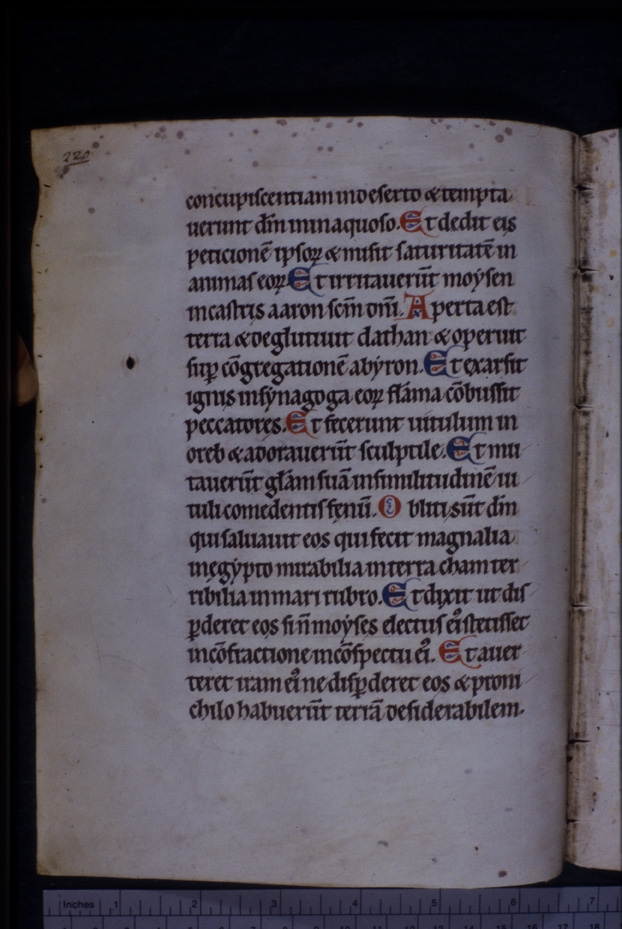 220
concupiscentiam in deserto & tempta
uerunt dm̄ in inaquoso. Et dedit eis
peticionē ipsoꝝ & misit saturitatē in
animas eoꝝ Et irritauerūt moẏsen
in castris aaron scm̄ dn̄i. Aperta est
terra & deglutiuit dathan & operuit
sup̱ cōgregationē abẏron. Et exarsit
ignis in sẏnagoga eoꝝ flāma cōbussit
peccatores. Et fecerunt uitulum in
oreb & adorauerūt sculptile. Et mu
tauerūt gl̄am suā in similitudinē ui
tuli comedentis fenū. Obliti sūt dm̄
qui saluauit eos qui fecit magnalia
in egẏpto mirabilia in terra cham ter
ribilia in mari rubro. Et dixit ut dis
ꝑderet eos si n̄ moẏses electus ei᷒ stetisset
in cōfractione in cōspectu ei᷒. Et auer
teret iram ei᷒ ne disꝑderet eos & pro ni
chilo habuerūt terrā desiderabilem.
Inches 1 2 3 4 5 6 7